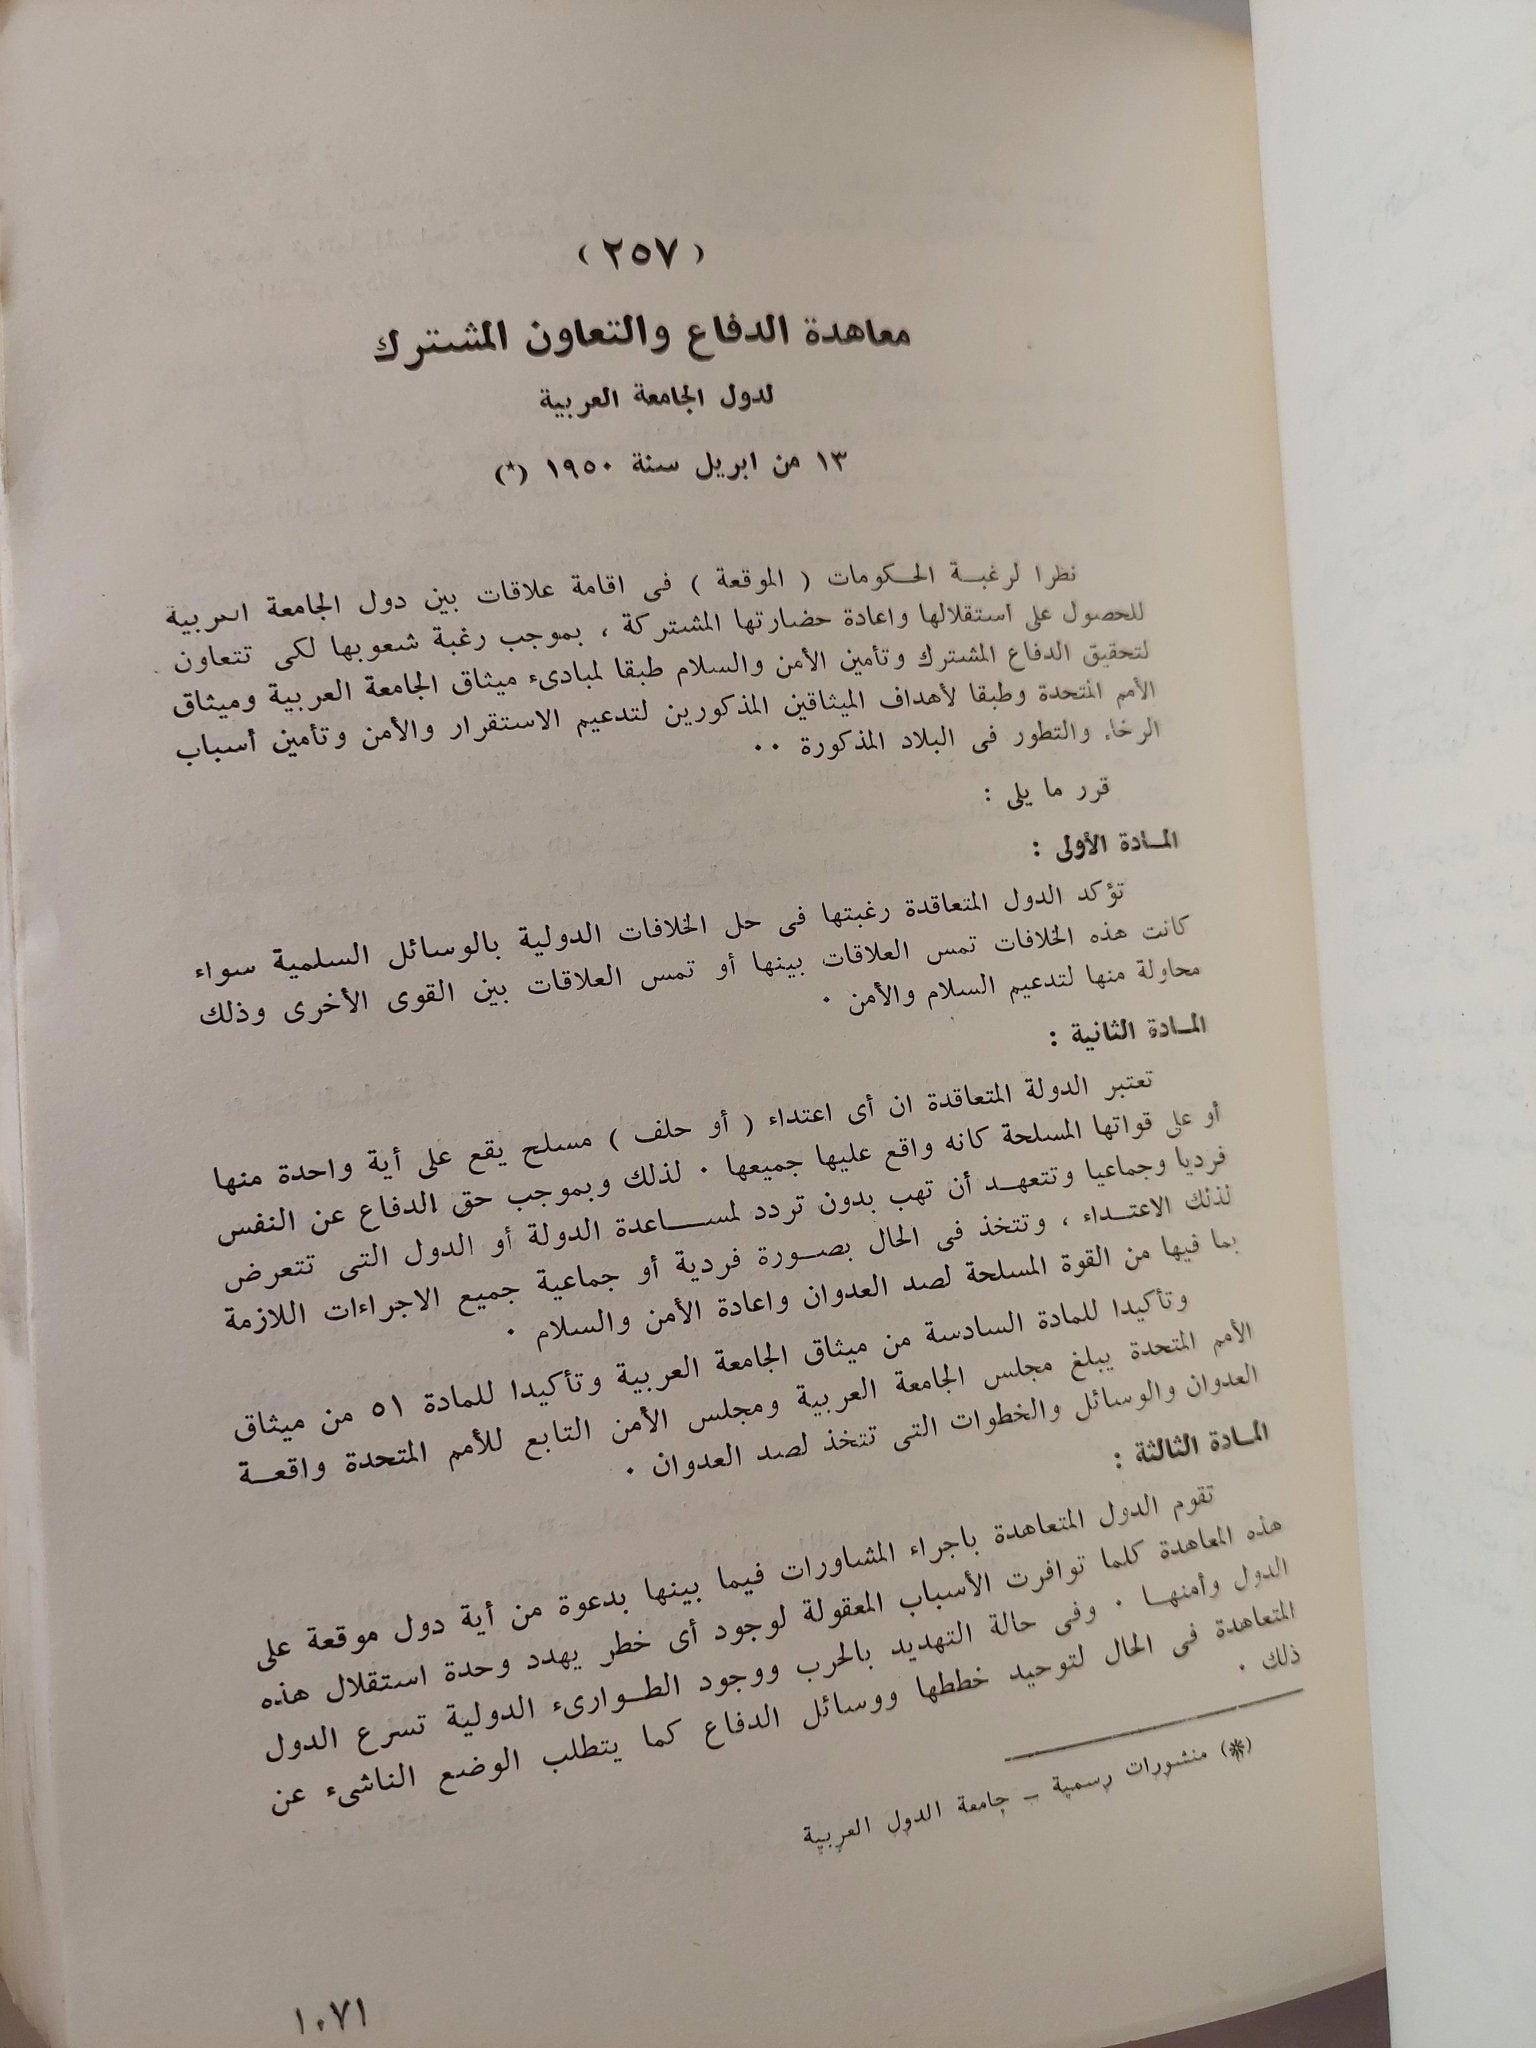 ( ٢٥٧ )
معاهدة الدفاع والتعاون المشترك
لدول الجامعة العربية
١٣ من ابريل سنة ١٩٥٠ (*)
نظرا لرغبة الحكومات ( الموقعة ) فى اقامة علاقات بين دول الجامعة العربية
للحصول على استقلالها واعادة حضارتها المشتركة ، بموجب رغبة شعوبها لكى تتعاون
لتحقيق الدفاع المشترك وتأمين الأمن والسلام طبقا لمبادىء ميثاق الجامعة العربية وميثاق
الأمم المتحدة وطبقا لأهداف الميثاقين المذكورين لتدعيم الاستقرار والأمن وتأمين أسباب
الرخاء والتطور فى البلاد المذكورة ٠٠
قرر ما يلى :
المادة الأولى :
تؤكد الدول المتعاقدة رغبتها فى حل الخلافات الدولية بالوسائل السلمية سواء
كانت هذه الخلافات تمس العلاقات بينها أو تمس العلاقات بين القوى الأخرى وذلك
محاولة منها لتدعيم السلام والأمن ٠
المادة الثانية :
تعتبر الدولة المتعاقدة ان أى اعتداء ( أو حلف ) مسلح يقع على أية واحدة منها
أو على قواتها المسلحة كانه واقع عليها جميعها ٠ لذلك وبموجب حق الدفاع عن النفس
فرديا وجماعيا وتتعهد أن تهب بدون تردد لمساعدة الدولة أو الدول التى تتعرض
لذلك الاعتداء ، وتتخذ فى الحال بصورة فردية أو جماعية جميع الاجراءات اللازمة
بما فيها من القوة المسلحة لصد العدوان واعادة الأمن والسلام ٠
وتأكيدا للمادة السادسة من ميثاق الجامعة العربية وتأكيدا للمادة ٥١ من ميثاق
الأمم المتحدة يبلغ مجلس الجامعة العربية ومجلس الأمن التابع للأمم المتحدة واقعة
العدوان والوسائل والخطوات التى تتخذ لصد العدوان ٠
المادة الثالثة :
تقوم الدول المتعاهدة باجراء المشاورات فيما بينها بدعوة من أية دول موقعة على
هذه المعاهدة كلما توافرت الأسباب المعقولة لوجود أى خطر يهدد وحدة استقلال هذه
الدول وأمنها ٠ وفى حالة التهديد بالحرب ووجود الطوارىء الدولية تسرع الدول
المتعاهدة فى الحال لتوحيد خططها ووسائل الدفاع كما يتطلب الوضع الناشىء عن
ذلك ٠
(*) منشورات رسمية – جامعة الدول العربية
١٠٧١